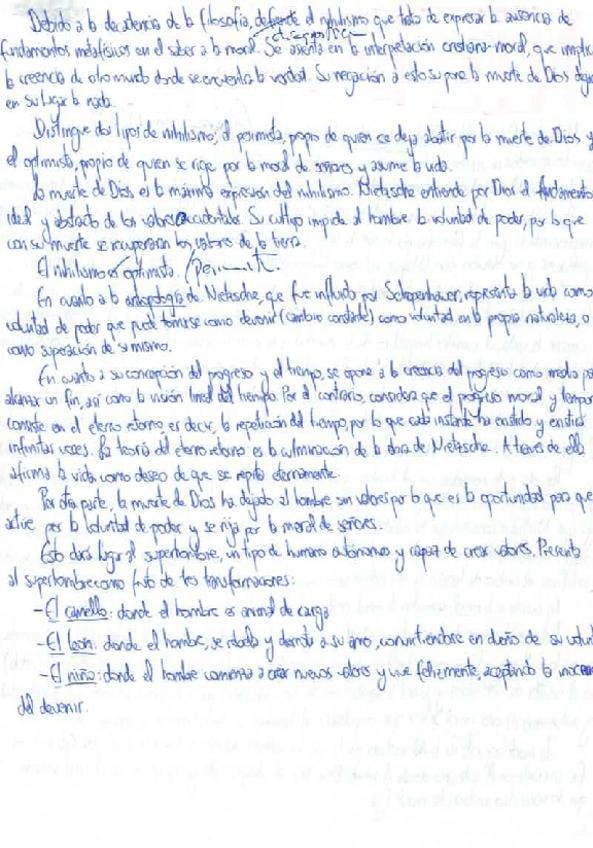 Debido a la decadencia de la filosofía, defiende el nihilismo que trata de expresar la ausencia de
fundamentos metafísicos en el saber a la moral. Se asienta en la interpretación cristiana-moral, que implica
la creencia de otro mundo donde se encuentra la verdad. Su negación a esto supone la muerte de Dios
en su lugar la nada.
Distingue dos tipos de nihilismo, el pesimista, propio de quien se deja abatir por la muerte de Dios y
el optimista, propio de quien se rige por la moral de señores y asume la vida.
La muerte de Dios es la máxima expresión del nihilismo. Nietzsche entiende por Dios el fundamento
ideal y abstracto de los valores occidentales. Su cultivo impide al hombre la voluntad de poder, por lo que
con su muerte se recuperarán los valores de la tierra.
El nihilismo es optimista.
En cuanto a la antropología de Nietzsche, que fue influido por Schopenhauer, representa la vida como
voluntad de poder que puede tomarse como devenir (cambio constante) como voluntad en la propia naturaleza, o
como superación de si mismo.
En cuanto a su concepción del progreso y el tiempo, se opone a la creencia del progreso como medio para
alcanzar un fin, así como la visión lineal del tiempo. Por el contrario, considera que el progreso moral y temporal
consiste en el eterno retorno es decir, la repetición del tiempo, por lo que cada instante ha existido y existirá
infinitas veces. La teoría del eterno retorno es la culminación de la obra de Nietzsche. A través de ella
afirma la vida como deseo de que se repita eternamente.
Por otra parte, la muerte de Dios ha dejado al hombre sin valores por lo que es la oportunidad para que
actúe por la voluntad de poder y se rija por la moral de señores.
Esto dará lugar al superhombre, un tipo de humano autónomo y capaz de crear valores. Presenta
al superhombre como fruto de tres transformaciones:
- El camello: donde el hombre es animal de carga
- El león: donde el hombre, se rebela y derrota a su amo, convirtiéndose en dueño de su volun
- El niño: donde el hombre comienza a crear nuevos valores y vive felizmente, aceptando la inocen
del devenir.